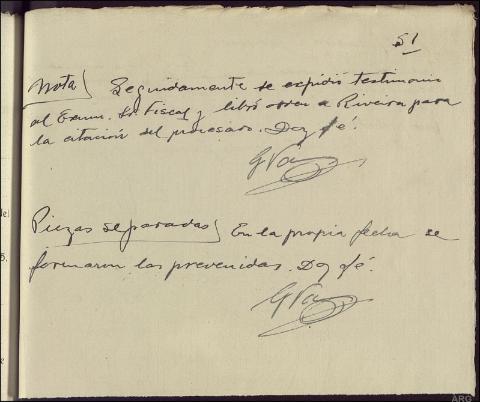 51
Nota) Seguidamente se expidió testimonio
al Excmo. Sr. Fiscal y libró orden a Riveira para
la citación del procesado. Doy fé.
Piezas separadas) En la propia fecha se
formaron las prevenidas. Doy fé.
ARG